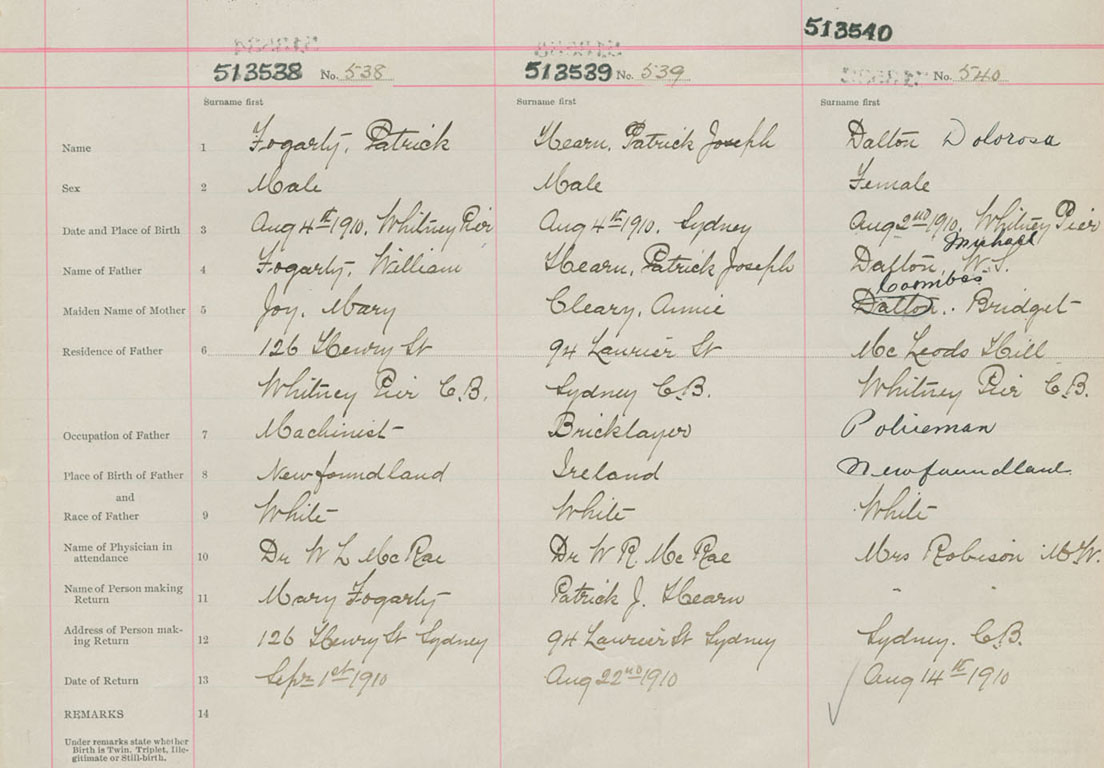 513540
513538 No. 538 513539 No. 539 No. 540
Surname first Surname first Surname first
Name 1 Fogarty, Patrick Hearn, Patrick Joseph Dalton Dolorosa
Sex 2 Male Male Female
Date and Place of Birth 3 Aug 4th 1910, Whitney Pier Aug 4th 1910, Sydney Aug 2nd 1910, Whitney Pier
Michael
Name of Father 4 Fogarty, William Hearn, Patrick Joseph Dalton, W.S.
Coombes
Maiden Name of Mother 5 Joy, Mary Cleary, Annie Dalton, Bridget
Residence of Father 6 126 Henry St 94 Laurier St Mc Leods Hill
Whitney Pier C.B. Sydney C.B. Whitney Pier C.B.
Occupation of Father 7 Machinist Bricklayer Policeman
Place of Birth of Father 8 Newfoundland Ireland Newfoundland
and
Race of Father 9 White White White
Name of Physician in
attendance 10 Dr W L McRae Dr W R McRae Mrs Robison M.W.
Name of Person making
Return 11 Mary Fogarty Patrick J. Hearn " "
Address of Person mak-
ing Return 12 126 Henry St Sydney 94 Laurier St Sydney Sydney. C.B.
Date of Return 13 Sept 1st 1910 Aug 22nd 1910 Aug 14th 1910
REMARKS 14
Under remarks state whether
Birth is Twin, Triplet, Ille-
gitimate or Still-birth.